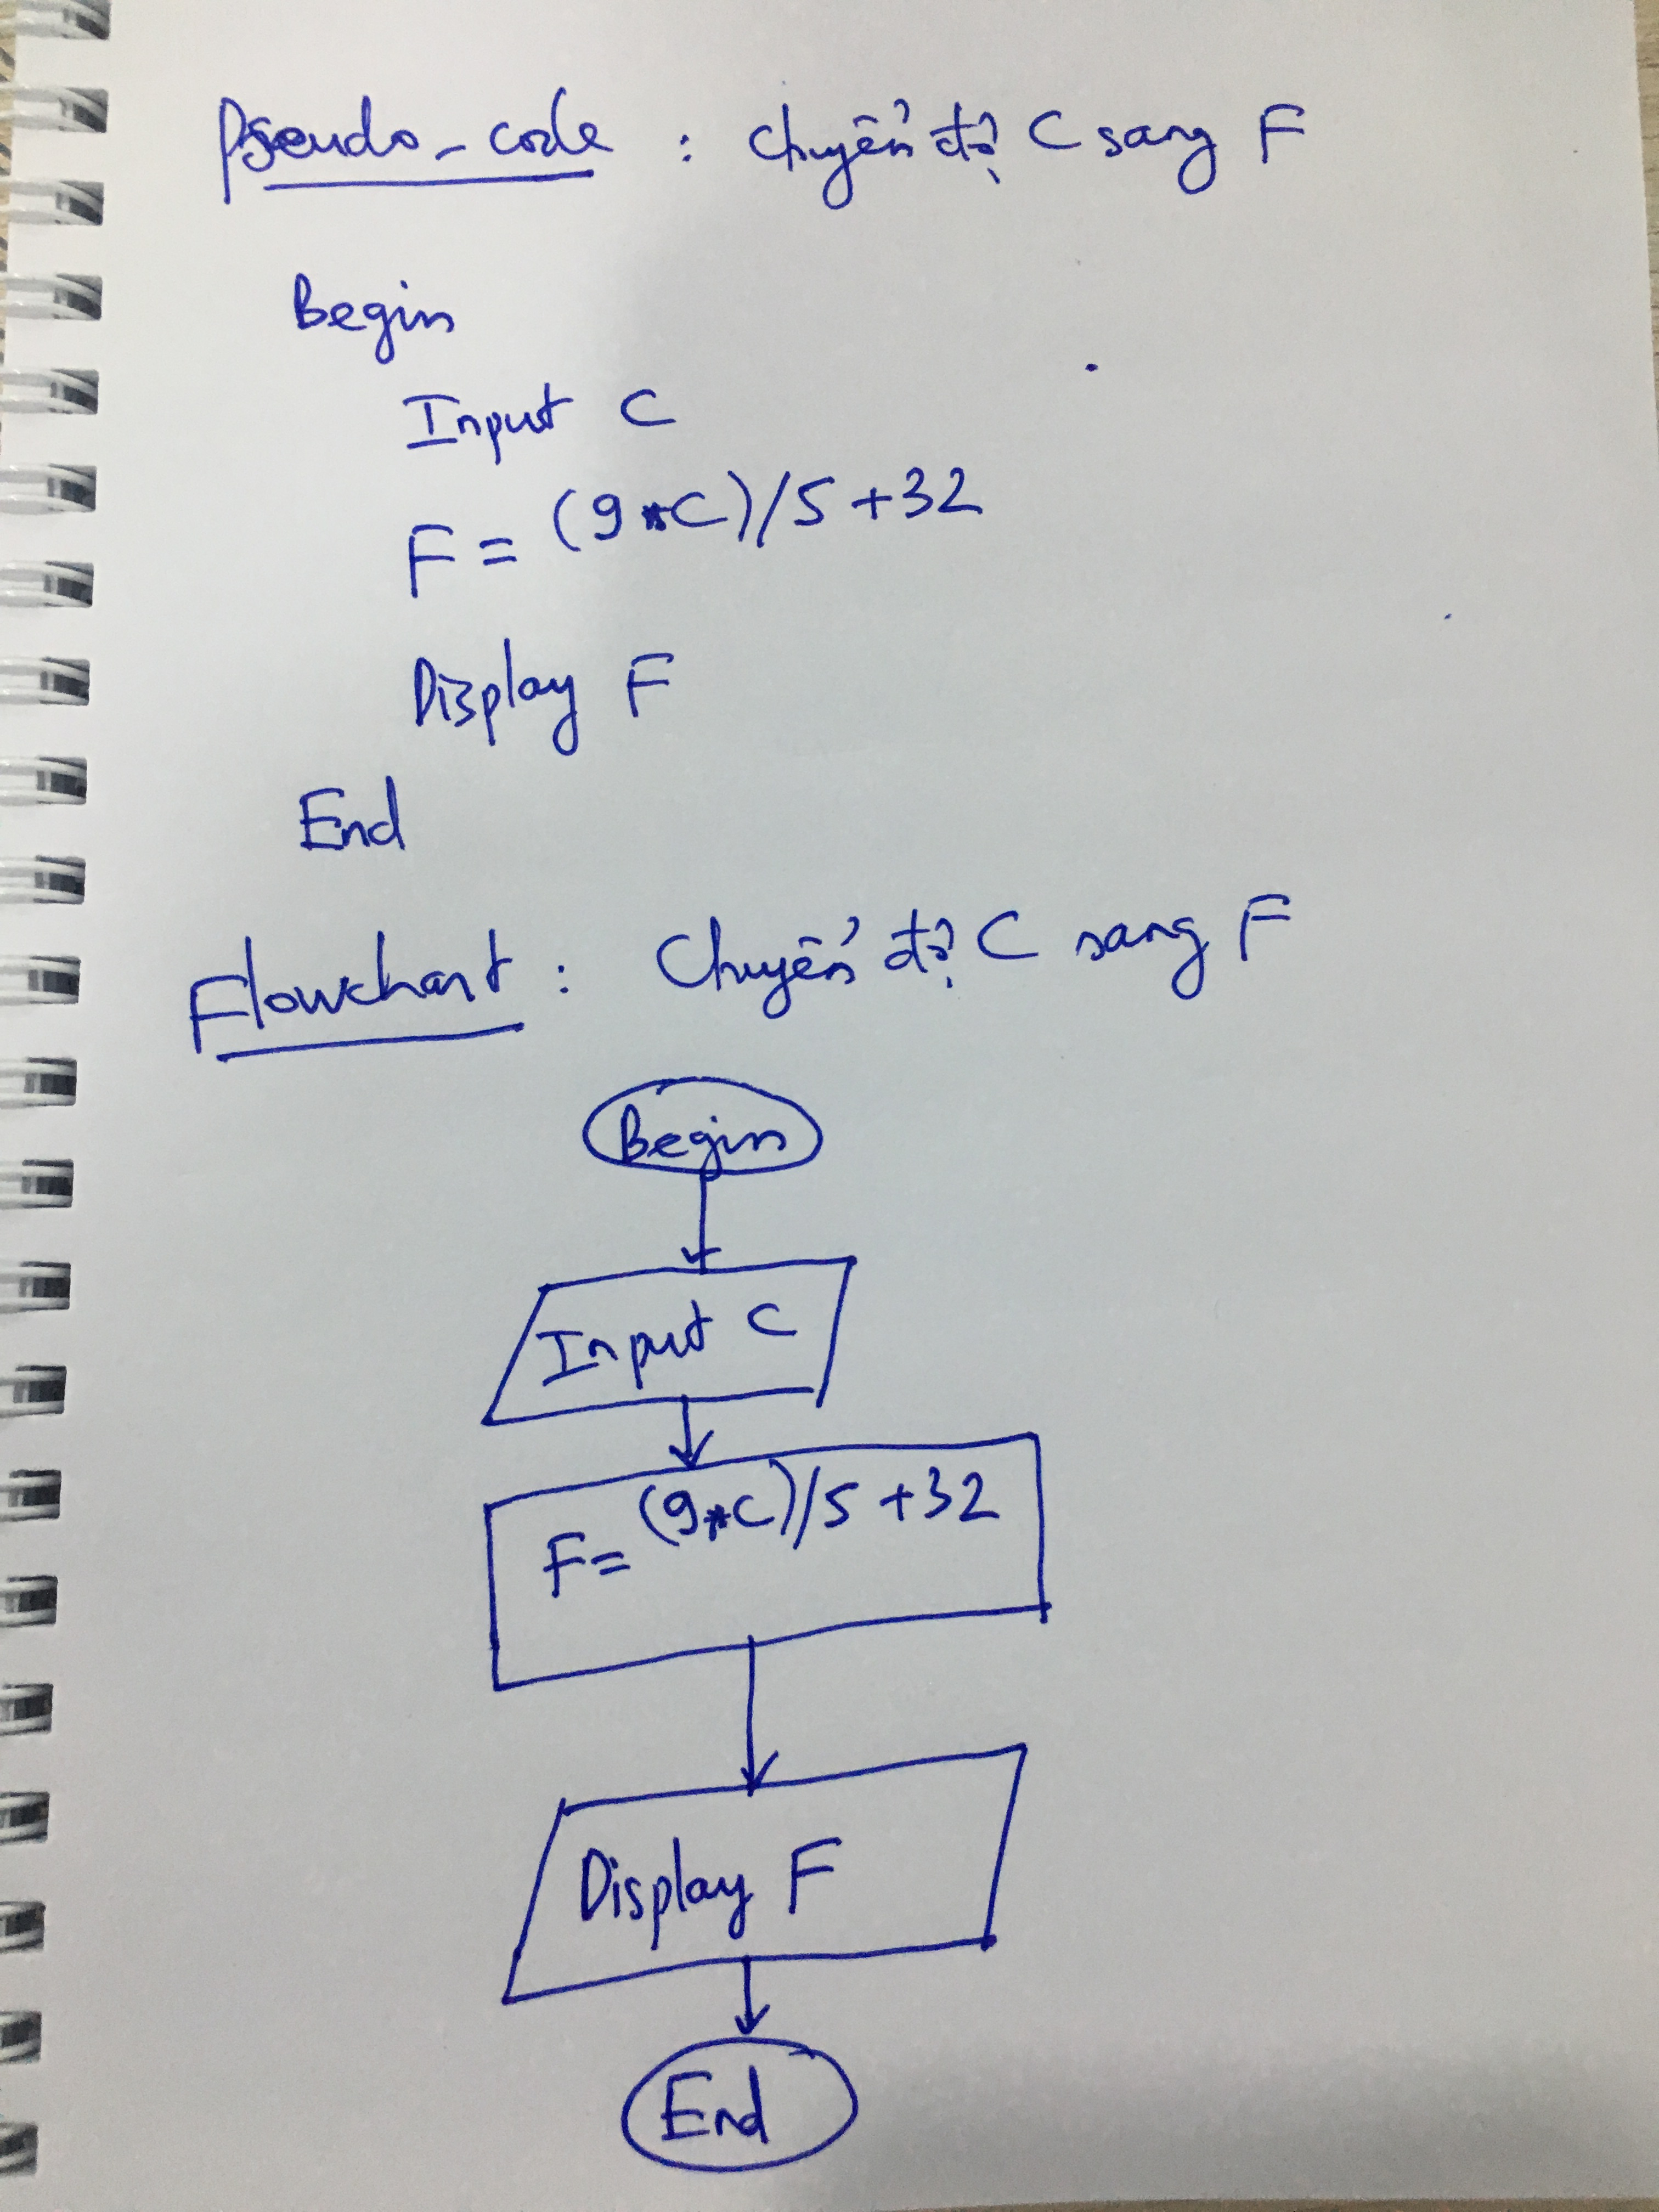 Pseudo-code : Chuyển độ C sang F
Begin
Input C
F = (9*C)/5+32
Display F
End
Flowchart : Chuyển độ C sang F
Begin
Input C
F= (9*C)/5+32
Display F
End